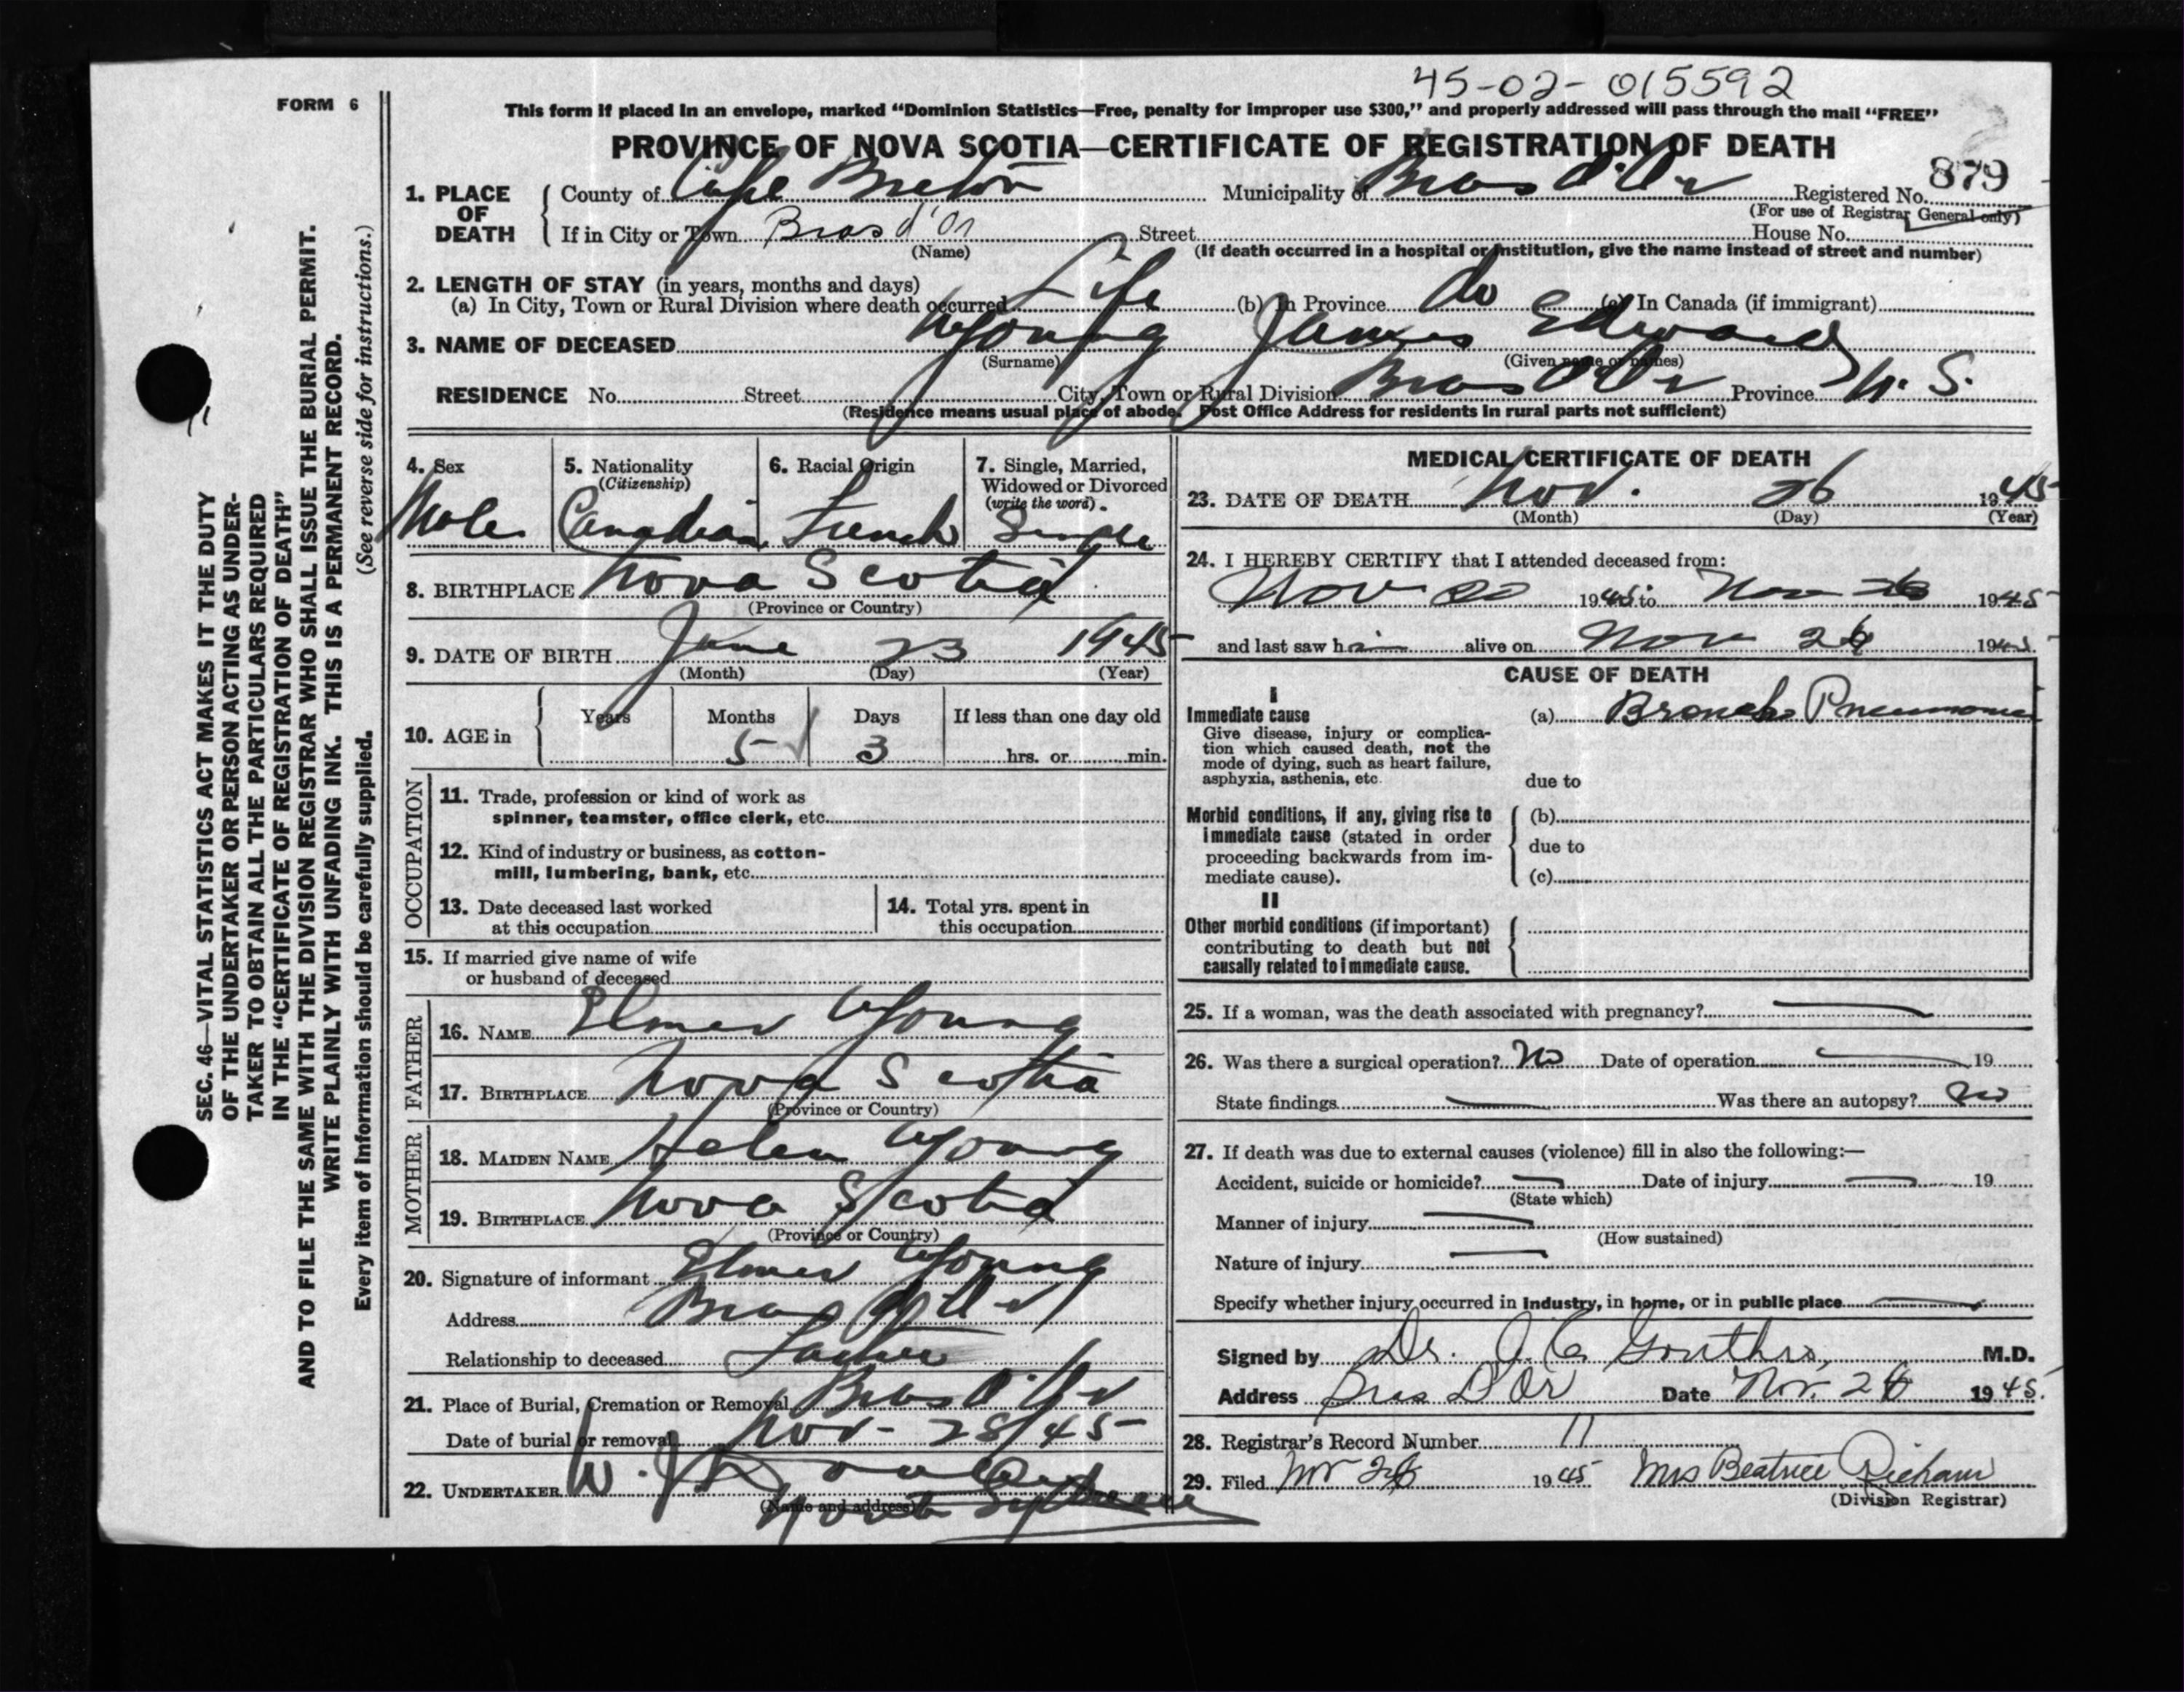 45-02-015592
FORM 6
This form if placed in an envelope, marked “Dominion Statistics—Free, penalty for improper use $300,” and properly addressed will pass through the mail “FREE”
PROVINCE OF NOVA SCOTIA—CERTIFICATE OF REGISTRATION OF DEATH
879
1. PLACE OF DEATH County of Cape Breton Municipality of Bras d'Or Registered No.
(For use of Registrar General only)
If in City or Town Bras d'Or Street House No.
(Name) (If death occurred in a hospital or institution, give the name instead of street and number)
2. LENGTH OF STAY (in years, months and days)
(a) In City, Town or Rural Division where death occurred Life (b) In Province do (c) In Canada (if immigrant)
3. NAME OF DECEASED Young James Edward
(Surname) (Given name or names)
RESIDENCE No. Street City, Town or Rural Division Bras d'Or Province N. S.
(Residence means usual place of abode. Post Office Address for residents in rural parts not sufficient)
4. Sex 5. Nationality (Citizenship) 6. Racial Origin 7. Single, Married, Widowed or Divorced (write the word).
Male Canadian French Single
8. BIRTHPLACE Nova Scotia
(Province or Country)
9. DATE OF BIRTH June 23 1945
(Month) (Day) (Year)
10. AGE in Years Months Days If less than one day old
5 3 hrs. or min.
OCCUPATION
11. Trade, profession or kind of work as
spinner, teamster, office clerk, etc.
12. Kind of industry or business, as cotton-
mill, lumbering, bank, etc.
13. Date deceased last worked
at this occupation
14. Total yrs. spent in
this occupation
15. If married give name of wife
or husband of deceased
FATHER
16. NAME Elmer Young
17. BIRTHPLACE Nova Scotia
(Province or Country)
MOTHER
18. MAIDEN NAME Helen Young
19. BIRTHPLACE Nova Scotia
(Province or Country)
20. Signature of informant Elmer Young
Address Bras d'Or
Relationship to deceased Father
21. Place of Burial, Cremation or Removal Bras d'Or
Date of burial or removal Nov - 28/45
22. UNDERTAKER W. J.
(Name and address)
North Sydney
MEDICAL CERTIFICATE OF DEATH
23. DATE OF DEATH Nov. 26 1945
(Month) (Day) (Year)
24. I HEREBY CERTIFY that I attended deceased from:
Nov 1945 to Nov 26 1945
and last saw him alive on Nov 26 1945
CAUSE OF DEATH
I
Immediate cause (a) Broncho Pneumonia
Give disease, injury or complica-
tion which caused death, not the
mode of dying, such as heart failure,
asphyxia, asthenia, etc. due to
Morbid conditions, if any, giving rise to (b)
immediate cause (stated in order due to
proceeding backwards from im-
mediate cause). (c)
II
Other morbid conditions (if important)
contributing to death but not
causally related to immediate cause.
25. If a woman, was the death associated with pregnancy? —
26. Was there a surgical operation? No Date of operation — 19
State findings — Was there an autopsy? No
27. If death was due to external causes (violence) fill in also the following:—
Accident, suicide or homicide? — Date of injury — 19
(State which)
Manner of injury —
(How sustained)
Nature of injury —
Specify whether injury occurred in industry, in home, or in public place —
Signed by Dr. J. C. Gouthro, M.D.
Address Bras D'Or Date Nov. 26 1945.
28. Registrar's Record Number 11
29. Filed Nov 26 1945 Mrs Beatrice
(Division Registrar)
SEC. 46—VITAL STATISTICS ACT MAKES IT THE DUTY
OF THE UNDERTAKER OR PERSON ACTING AS UNDER-
TAKER TO OBTAIN ALL THE PARTICULARS REQUIRED
IN THE “CERTIFICATE OF REGISTRATION OF DEATH”
AND TO FILE THE SAME WITH THE DIVISION REGISTRAR WHO SHALL ISSUE THE BURIAL PERMIT.
WRITE PLAINLY WITH UNFADING INK. THIS IS A PERMANENT RECORD.
Every item of information should be carefully supplied. (See reverse side for instructions.)